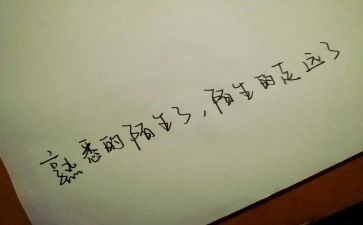 熟悉的陌生了,陌生的走远了